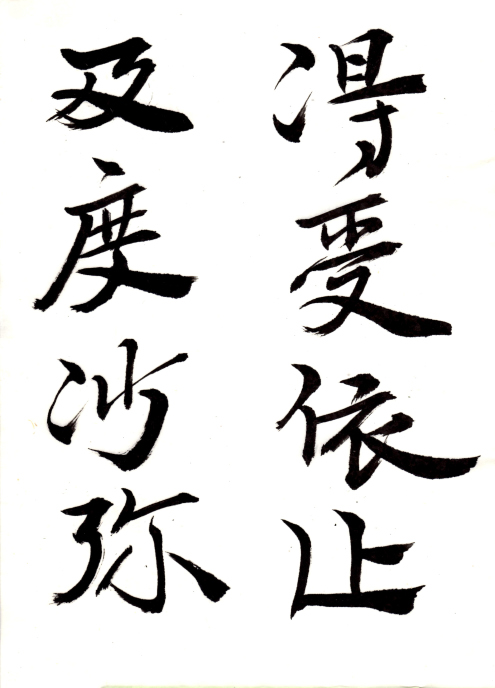 得受依止
及度沙弥